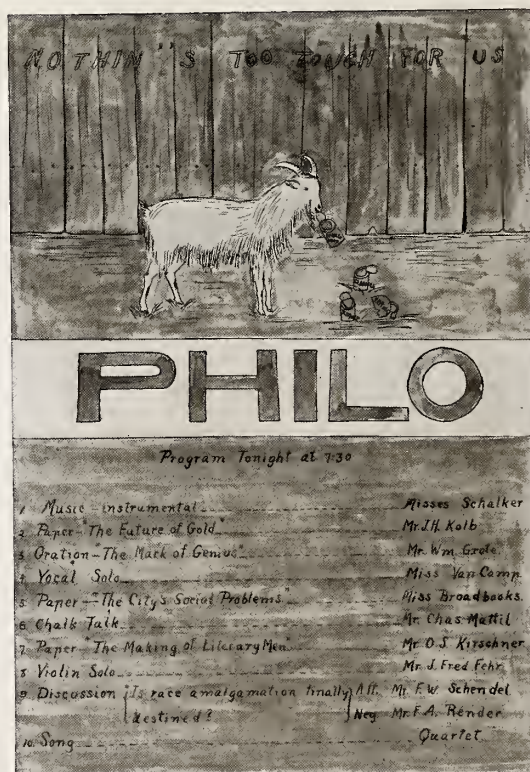 NOTHIN''S TOO TOUGH FOR US
PHILO
Program Tonight at 7:30
1. Music - instrumental Misses Schalker
2. Paper - "The Future of Gold Mr. J.H. Kolb
3. Oration - The Mark of Genius" Mr. Wm. Grote
4. Vocal Solo Miss Van Camp
5. Paper - "The City's Social Problems" Miss Broadbooks.
6. Chalk Talk Mr. Chas Mattil
7. Paper "The Making of Literary Men" Mr. O.S. Kirschner
8 Violin Solo Mr. J. Fred Fehr
9 Discussion {Is race amalgamation finally} Aff. Mr. F.W. Schendel
destined? Neg Mr. F.A. Render
10. Song Quartet